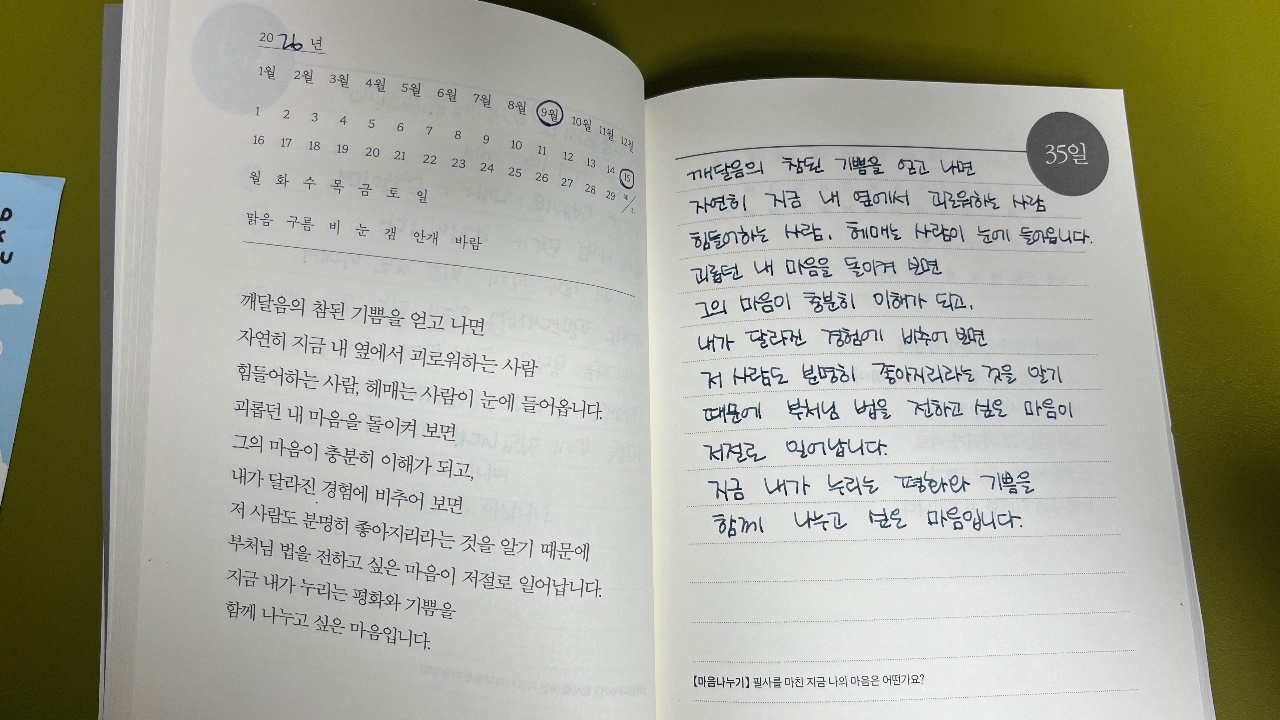 2026년
1월 2월 3월 4월 5월 6월 7월 8월 9월 10월 11월 12월
1 2 3 4 5 6 7 8 9 10 11 12 13 14 15
16 17 18 19 20 21 22 23 24 25 26 27 28 29 30/31
월 화 수 목 금 토 일
맑음 구름 비 눈 갬 안개 바람
깨달음의 참된 기쁨을 얻고 나면
자연히 지금 내 옆에서 괴로워하는 사람
힘들어하는 사람, 헤매는 사람이 눈에 들어옵니다.
괴롭던 내 마음을 돌이켜 보면
그의 마음이 충분히 이해가 되고,
내가 달라진 경험에 비추어 보면
저 사람도 분명히 좋아지리라는 것을 알기 때문에
부처님 법을 전하고 싶은 마음이 저절로 일어납니다.
지금 내가 누리는 평화와 기쁨을
함께 나누고 싶은 마음입니다.
35일
깨달음의 참된 기쁨을 얻고 나면
자연히 지금 내 옆에서 괴로워하는 사람
힘들어하는 사람, 헤매는 사람이 눈에 들어옵니다.
괴롭던 내 마음을 돌이켜 보면
그의 마음이 충분히 이해가 되고,
내가 달라진 경험에 비추어 보면
저 사람도 분명히 좋아지리라는 것을 알기
때문에 부처님 법을 전하고 싶은 마음이
저절로 일어납니다.
지금 내가 누리는 평화와 기쁨을
함께 나누고 싶은 마음입니다.
[마음나누기] 필사를 마친 지금 나의 마음은 어떤가요?
D
K
U